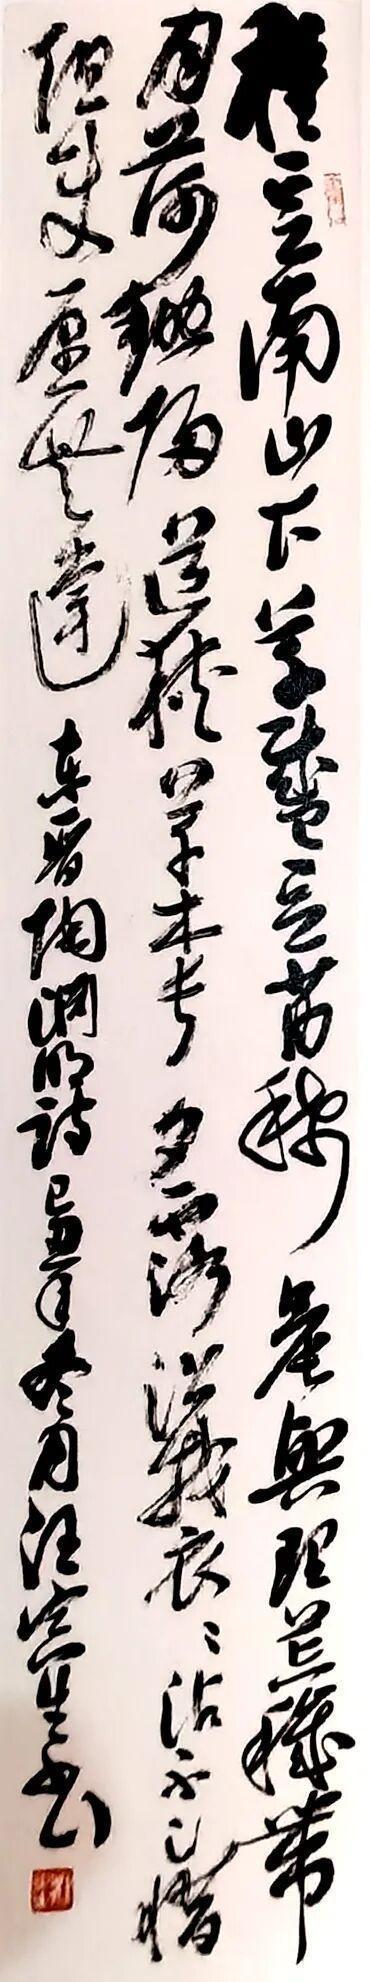 種豆南山下草盛豆苗稀晨興理荒穢帶
月荷鋤歸道狹草木長夕露沾我衣〻沾不足惜
但使願無違 東晋陶淵明詩 己丑年冬月汪寅生书